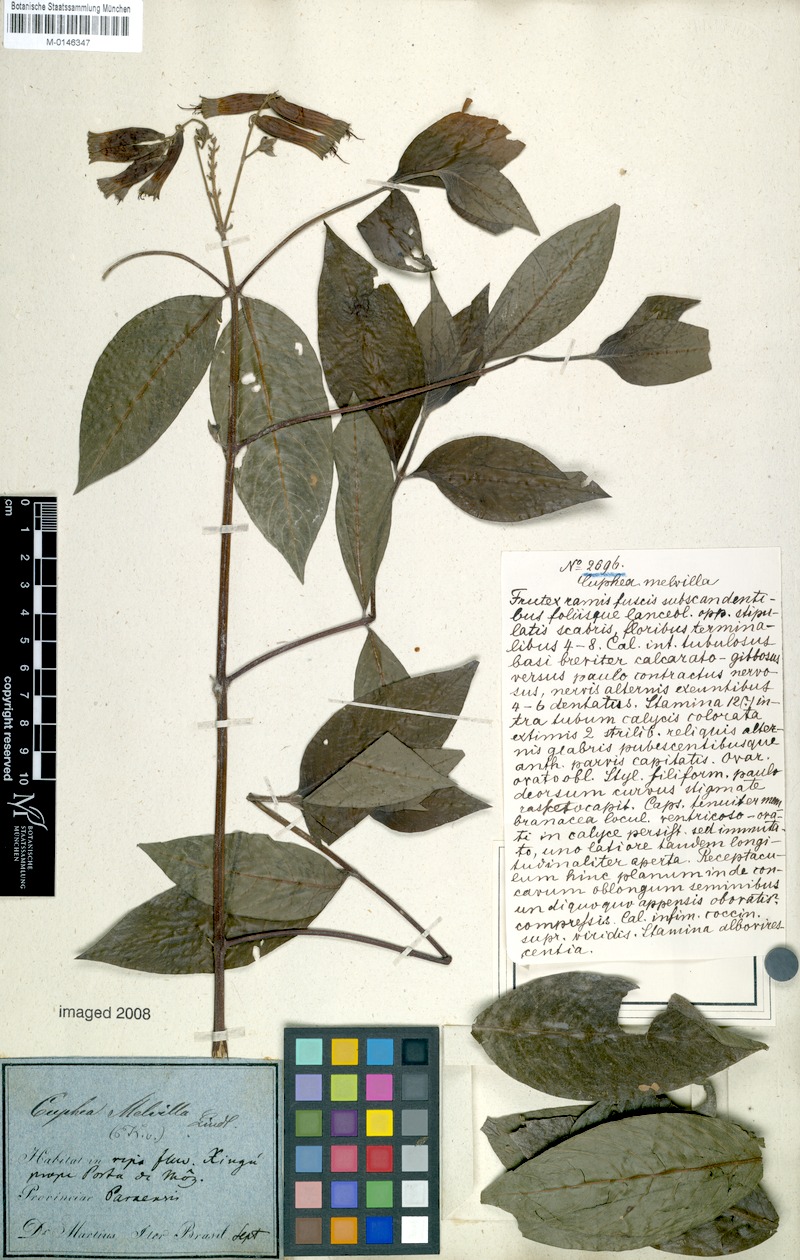 Botanische Staatssammlung München
M-0146347
Nº 2696.
Cuphea melvilla
Frutex ramis fuscis subscandenti-
bus foliisque lanceol. opp. stipu-
latis scabris, floribus termina-
libus 4-8. Cal. int. tubulosus
basi breviter calcarato-gibbosus
versus paulo contractus nervo-
sus, nervis alternis exeuntibus
4-6 dentatus. Stamina 12(?) in-
tra tubum calycis colorata
extimis 2 strilib. reliquis alter-
nis glabris pubescentibusque
anth. parvis capitatis. Ovar.
ovato obl. Styl. filiform. paulo
deorsum curvus stigmate
capit. Caps. tenuiter mem
branacea locul. ventricoso-ova-
ti in calyce persist. sed immuta-
to, uno latiore tandem longi-
tudinaliter aperta. Receptacu-
lum hinc planum inde con-
cavum oblongum seminibus
undiquoquo appensis obovatis
compressis. Cal. infim. coccin.
supr. viridis. Stamina albovires-
centia.
cm
0 1 2 3 4 5 6 7 8 9 10
copyright reserved
BOTANISCHE
STAATSSAMMLUNG
MÜNCHEN
imaged 2008
Cuphea Melvilla Lindl.
Habitat in ripa fluv. Xingú
prope Porto de Môz.
Provinciae Paraensis
Dr. Martius Iter Brasil. Sept